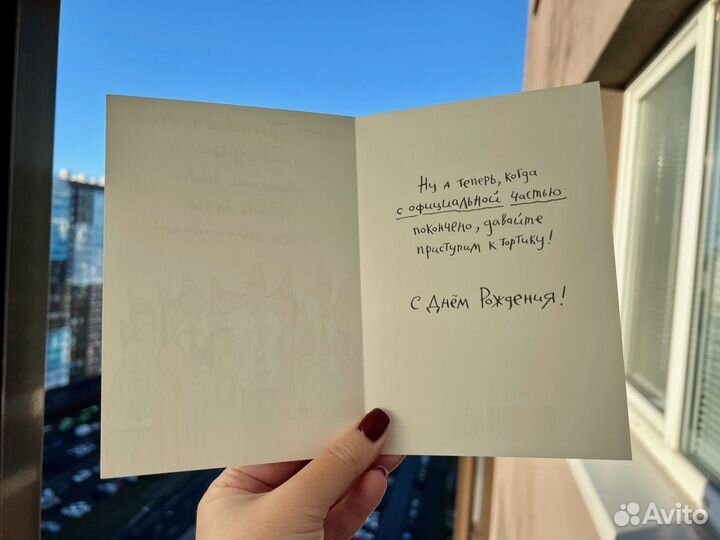 Ну а теперь, когда
с официальной частью
покончено, давайте
приступим к тортику!
С Днём Рождения!
Avito